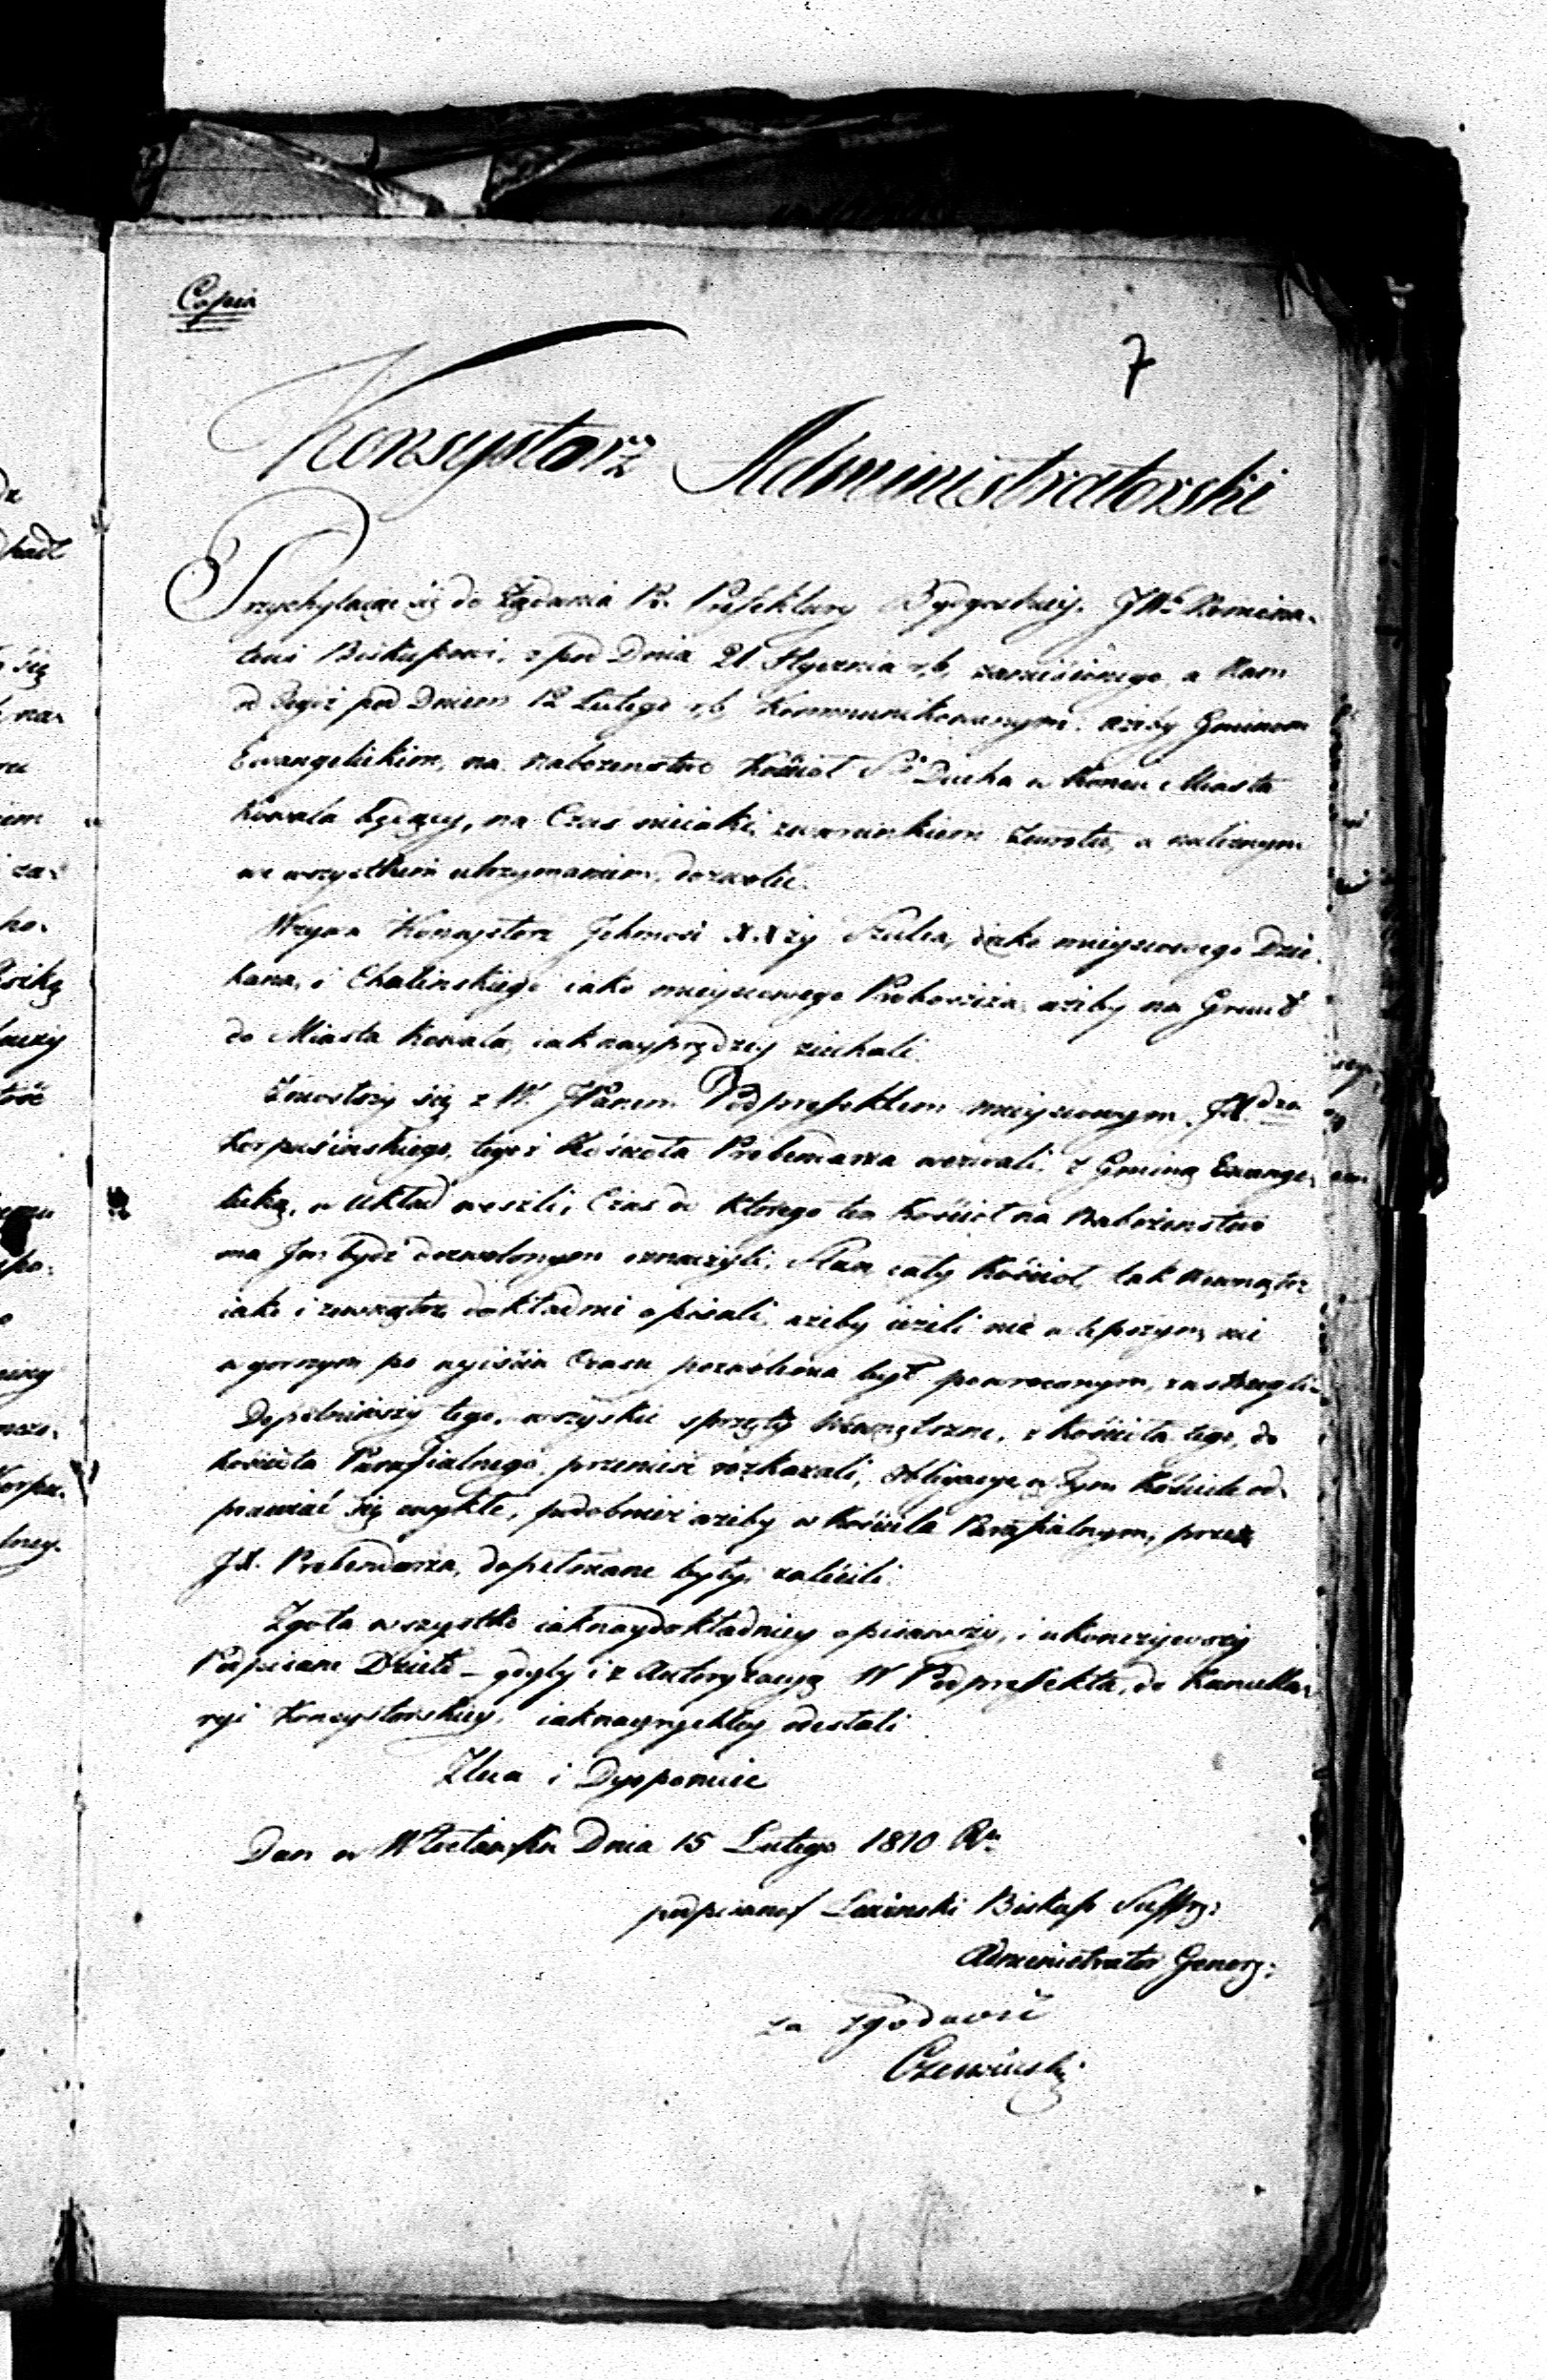 Copia
7
Konsystorz Administratorski
Przychylaiąc się do Żądania Pr. Prefektury Bydgoskiey. JWu Nomina-
towi Biskupowi, z pod Dnia 21. Stycznia r.b. zaniesionego, a Nam
od Tegoż pod Dniem 12 Lutego r.b. Kommunikowanym. ażeby Gminom
Ewangelickim, na nabożeństwo Kościoł Sgo Ducha w Koncu Miasta
Kowala będący, na Czas nieiaki, zwarunkiem Zwrotu, a należnym
we wszystkim utrzymaniem, dozwolić.
Wzywa Konsystorz Jchmość XXży Szulca, iako mieyscowego Dzie-
kana, i Chalinskiego iako mieyscowego Proboszcza, ażeby na Grunt
do Miasta Kowala, iaknayprędzey ziechali.
Zniosłszy się z W. JPanem Podprefektem mieyscowym. JXdza
Korpusińskiego, tegoż Kościoła Prebendarza wezwali, z Gminą Ewange-
licką, w Układ weszli, Czas do ktorego ten Kościoł na Nabożeństwo
ma Jm bydź dozwolonym oznaczyli, Stan cały Kościoł, tak wewnątrz
iako i zewnątrz dokładnie opisali, ażeby ieżeli nie w lepszym, nie
w gorszym po wyiściu Czasu pozwolenia był powroconym, zastrzegli.
Dopełniwszy tego, wszyskie sprzęty wewnętrzne, z Kościoła tego, do
Kościoła Parafialnego, przenieść rozkazali, Obligacye w Tym Kościele od-
prawiać się zwykłe, podobnież ażeby w Kościele Parafialnym, przez
JX. Prebendarza, dopełniane były, zalecili.
Zgoła wszystko iaknaydokładniey opisawszy, i ukonczywszy
Podpisane Dzieło - gdyby i z Autoryzacyą W Podprefekta, do Kancella-
ryi Konsystorskiey, iaknayrychley odesłali
Zleca i Dysponuie
Dan w Włocławku Dnia 15 Lutego 1810 Ru
podpisano/ Biskup Suffrg:
Administrator Generg:
za zgodność